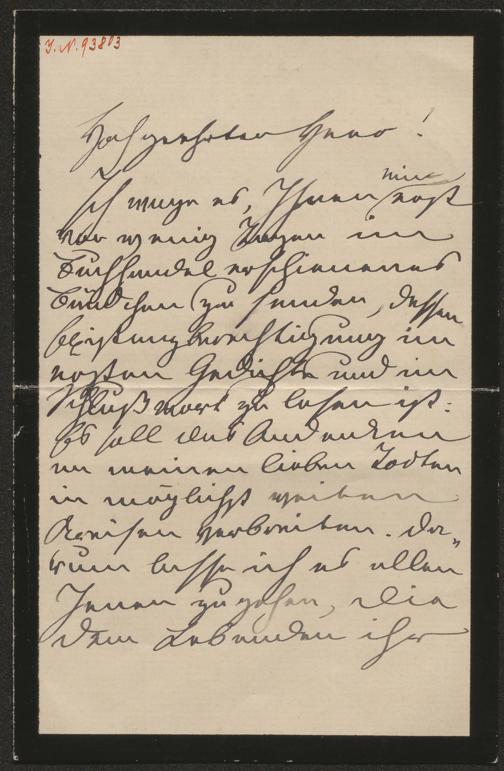 J. N. 93803
Hochgeehrter Herr!
Ich wage es, Ihnen mein erst
vor wenig Tagen im
Buchhandel erschienenes
Bändchen zu senden, dessen
Existenzberechtigung im
ersten Gedichte und im
Schlußwort zu lesen ist:
Es soll das Andenken
an meinen lieben Todten
in möglichst weiten
Kreisen verbreiten. Da„
rum lasse ich es allen
Jenen zugehen, die
dem Lebenden ihr